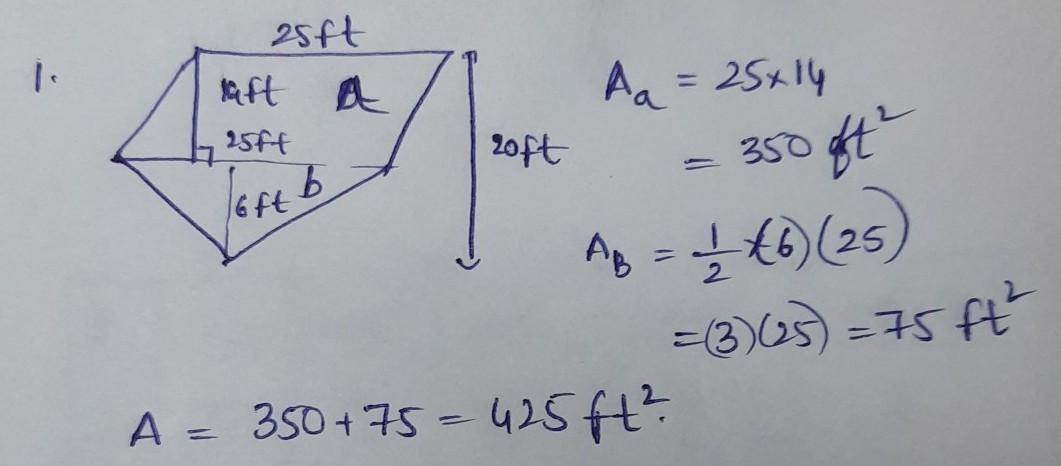 1.
25ft
14ft A
25ft
20ft
6ft b
Aa = 25x14
= 350 ft²
AB = 1/2 (6)(25)
=(3)(25) = 75 ft²
A = 350+75 = 425 ft².